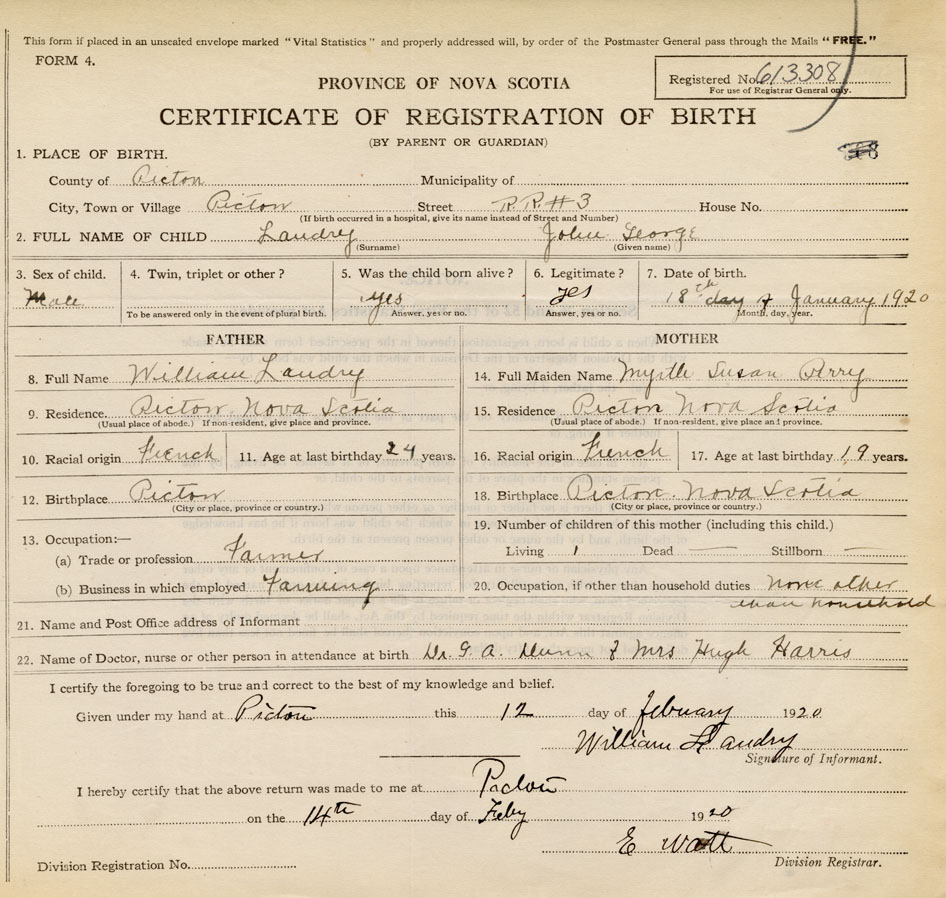 This form if placed in an unsealed envelope marked "Vital Statistics" and properly addressed will, by order of the Postmaster General pass through the Mails "FREE."
FORM 4.
Registered No. 613308
For use of Registrar General only.
PROVINCE OF NOVA SCOTIA
CERTIFICATE OF REGISTRATION OF BIRTH
(BY PARENT OR GUARDIAN)
1. PLACE OF BIRTH.
County of Picton Municipality of
City, Town or Village Picton Street R.R.#3 House No.
(If birth occurred in a hospital, give its name instead of Street and Number)
2. FULL NAME OF CHILD Landry John George
(Surname) (Given name)
3. Sex of child. 4. Twin, triplet or other? 5. Was the child born alive? 6. Legitimate? 7. Date of birth.
Male yes yes 18th day of January 1920
To be answered only in the event of plural birth. Answer, yes or no. Answer, yes or no. Month, day, year.
FATHER MOTHER
8. Full Name William Landry 14. Full Maiden Name Myrtle Susan Perry
9. Residence. Picton Nova Scotia 15. Residence Picton Nova Scotia
(Usual place of abode.) If non-resident, give place and province. (Usual place of abode.) If non-resident, give place and province.
10. Racial origin French 11. Age at last birthday 24 years. 16. Racial origin French 17. Age at last birthday 19 years.
12. Birthplace Picton 18. Birthplace Picton Nova Scotia
(City or place, province or country.) (City or place, province or country.)
13. Occupation:— 19. Number of children of this mother (including this child.)
(a) Trade or profession Farmer Living 1 Dead — Stillborn —
(b) Business in which employed Farming 20. Occupation, if other than household duties None other
than household
21. Name and Post Office address of Informant
22. Name of Doctor, nurse or other person in attendance at birth Dr. G. A. Dunn & Mrs Hugh Harris
I certify the foregoing to be true and correct to the best of my knowledge and belief.
Given under my hand at Picton this 12 day of February 1920
William Landry
Signature of Informant.
I hereby certify that the above return was made to me at Picton
on the 14th day of Feby 1920
E Watt
Division Registration No. Division Registrar.